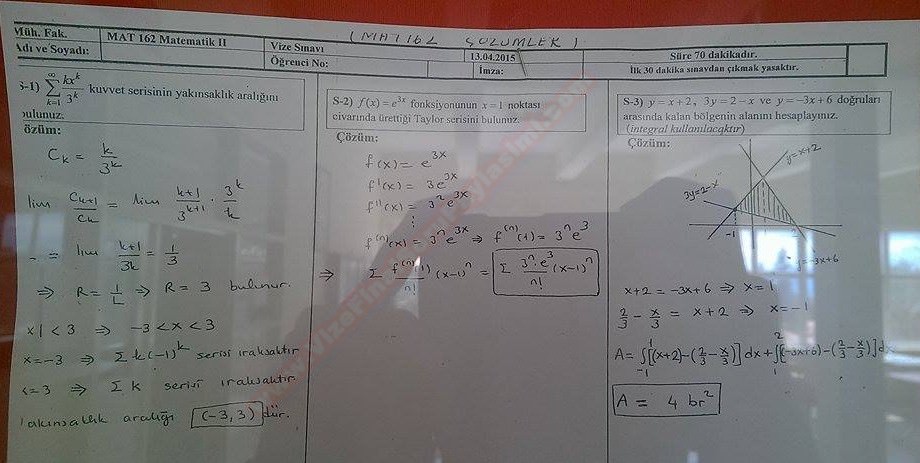 ( MAT 162 ÇÖZÜMLER )
Müh. Fak. MAT 162 Matematik II Vize Sınavı 13.04.2015 Süre 70 dakikadır.
Adı ve Soyadı: Öğrenci No: İmza: İlk 30 dakika sınavdan çıkmak yasaktır.
S-1) ∞∑k=1 kx^k/3^k kuvvet serisinin yakınsaklık aralığını
bulunuz.
özüm:
C_k = k/3^k
lim C_{k+1}/C_k = lim k+1/3^{k+1} · 3^k/k
= lim k+1/3k = 1/3
⇒ R = 1/L ⇒ R = 3 bulunur.
x| < 3 ⇒ -3 < x < 3
x=-3 ⇒ ∑ k(-1)^k serisi ıraksaktır
x=3 ⇒ ∑ k serisi ıraksaktır.
Yakınsaklık aralığı (-3,3) dür.
S-2) f(x) = e^{3x} fonksiyonunun x = 1 noktası
civarında ürettiği Taylor serisini bulunuz.
Çözüm:
f(x) = e^{3x}
f'(x) = 3e^{3x}
f''(x) = 3^2 e^{3x}
⋮
f^{(n)}(x) = 3^n e^{3x} ⇒ f^{(n)}(1) = 3^n e^3
⇒ ∑ f^{(n)}(1)/n! (x-1)^n = ∑ 3^n·e^3/n! (x-1)^n
S-3) y = x + 2 , 3y = 2 − x ve y = −3x + 6 doğruları
arasında kalan bölgenin alanını hesaplayınız.
(integral kullanılacaktır)
Çözüm:
y=x+2
3y=2-x
-1 1 2
y=-3x+6
x+2 = -3x+6 ⇒ x=1
2/3 - x/3 = x+2 ⇒ x=-1
A = ∫_{-1}^{1} [(x+2)-(2/3-x/3)] dx + ∫_1^2 [(-3x+6)-(2/3-x/3)] dx
A = 4 br^2